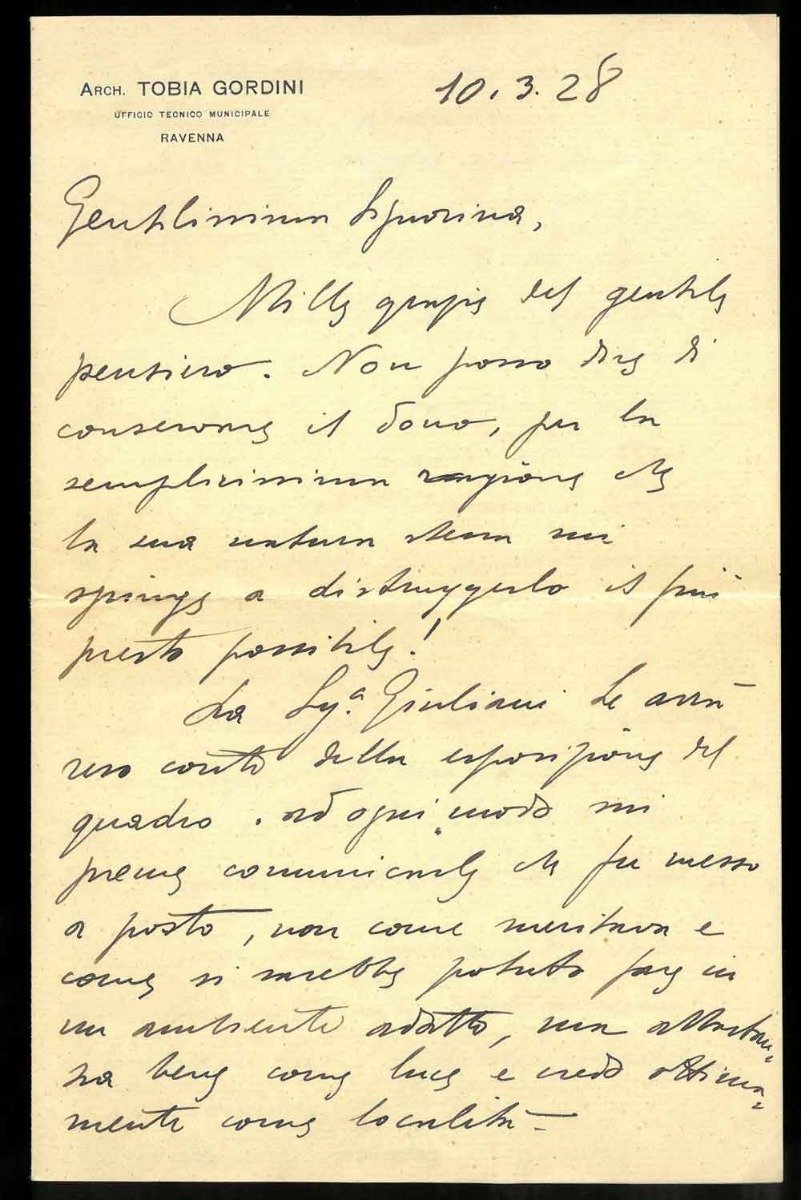 ARCH. TOBIA GORDINI
UFFICIO TECNICO MUNICIPALE
RAVENNA
10.3.28
Gentilissima Signorina,
Mille grazie del gentile
pensiero. Non posso dire di
conservare il dono, per la
semplicissima ragione che
la sua natura stessa mi
spinge a distruggerlo il più
presto possibile!
La Sig.a Giuliani Le avrà
reso conto della esposizione del
quadro. Ad ogni modo mi
preme comunicarle che fu messo
a posto, non come meritava e
come si sarebbe potuto fare in
un ambiente adatto, ma abbastan=
za bene come luce e credo ottima=
mente come località -